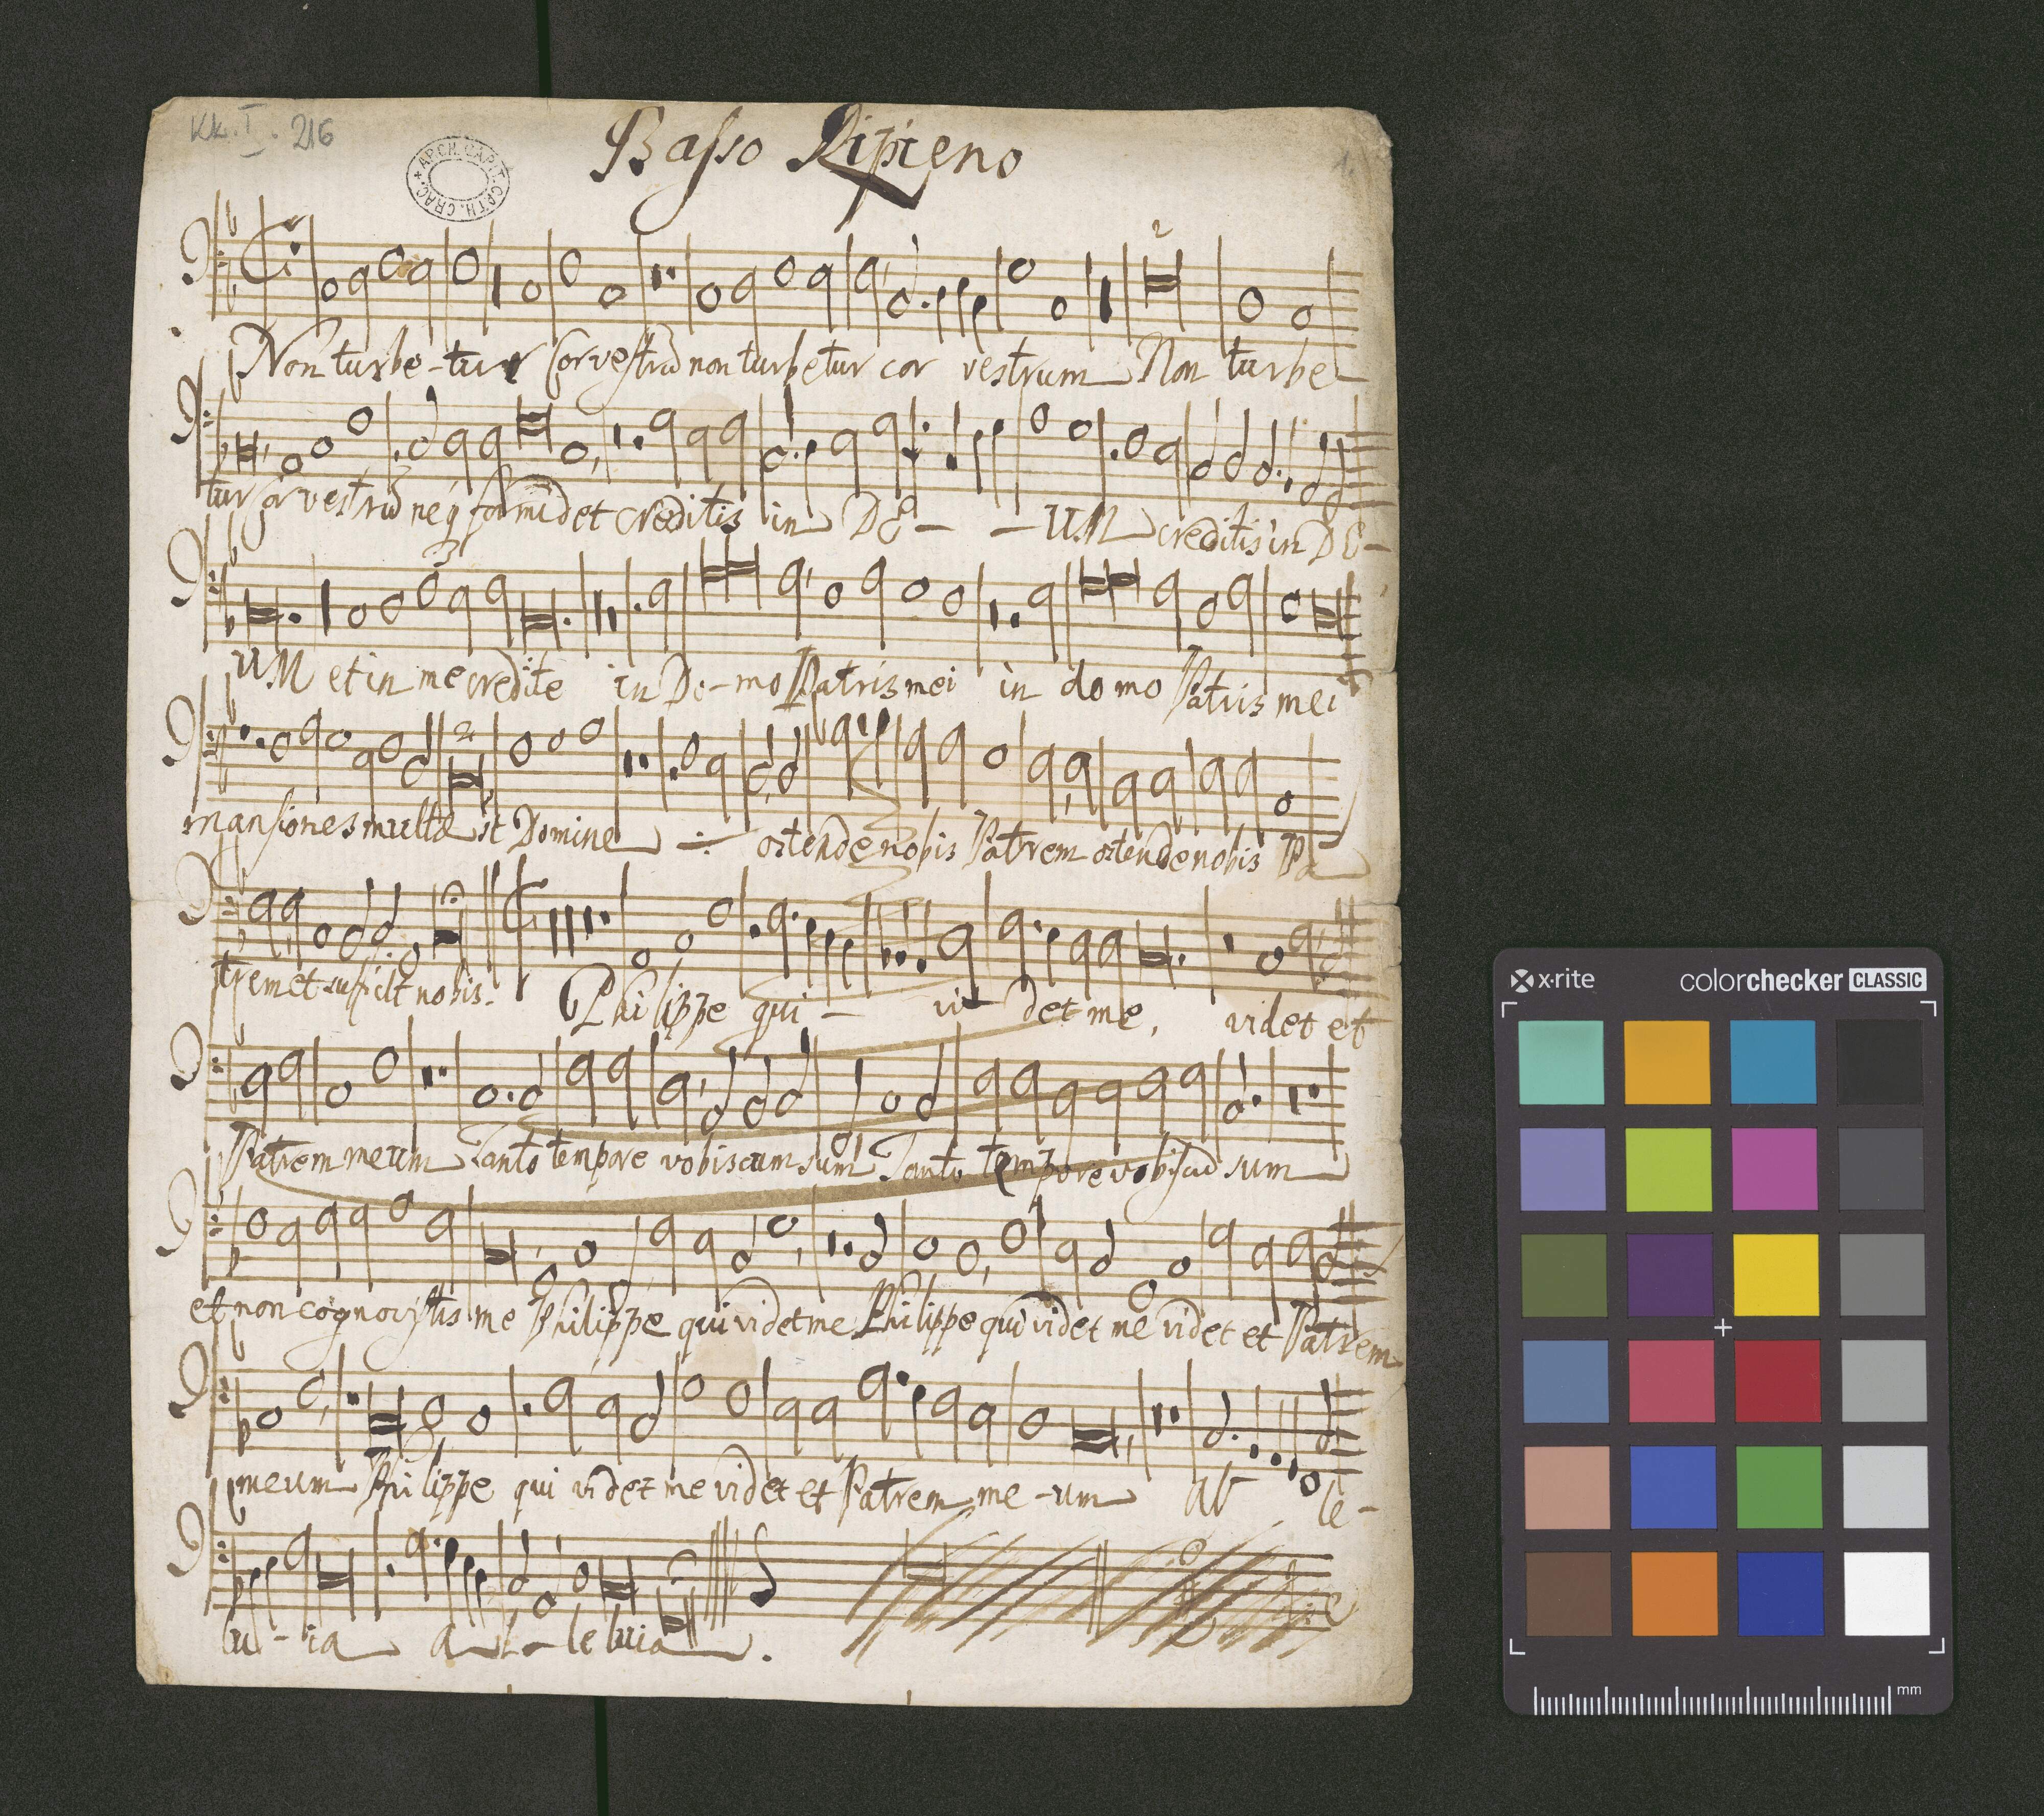 Kk. I. 216
Basso Ripieno
1.
ARCH. CAPIT. CATH. CRAC.
2
Non turbe-tur Cor vestrũ non turbetur cor vestrum Non turbe
tur Cor vestrũ neq formidet creditis in DE- -UM creditis in DE-
3
UM et in me credite in Do-mo Patris mei in domo Patris mei
2
mansiones multæ st Domine ÷ ostende nobis Patrem ostende nobis Pa
trem et suficit nobis.
Philippe qui - vi det me, videt et
Patrem meum Tanto tempore vobiscum sum Tanto tempore vobiscũ sum
et non cognovistis me Philippe qui videt me Philippe qui videt me videt et Patrem
meum Philippe qui videt me videt et Patrem me-um al le-
lu-ia al-leluia.
x-rite
colorchecker CLASSIC
mm